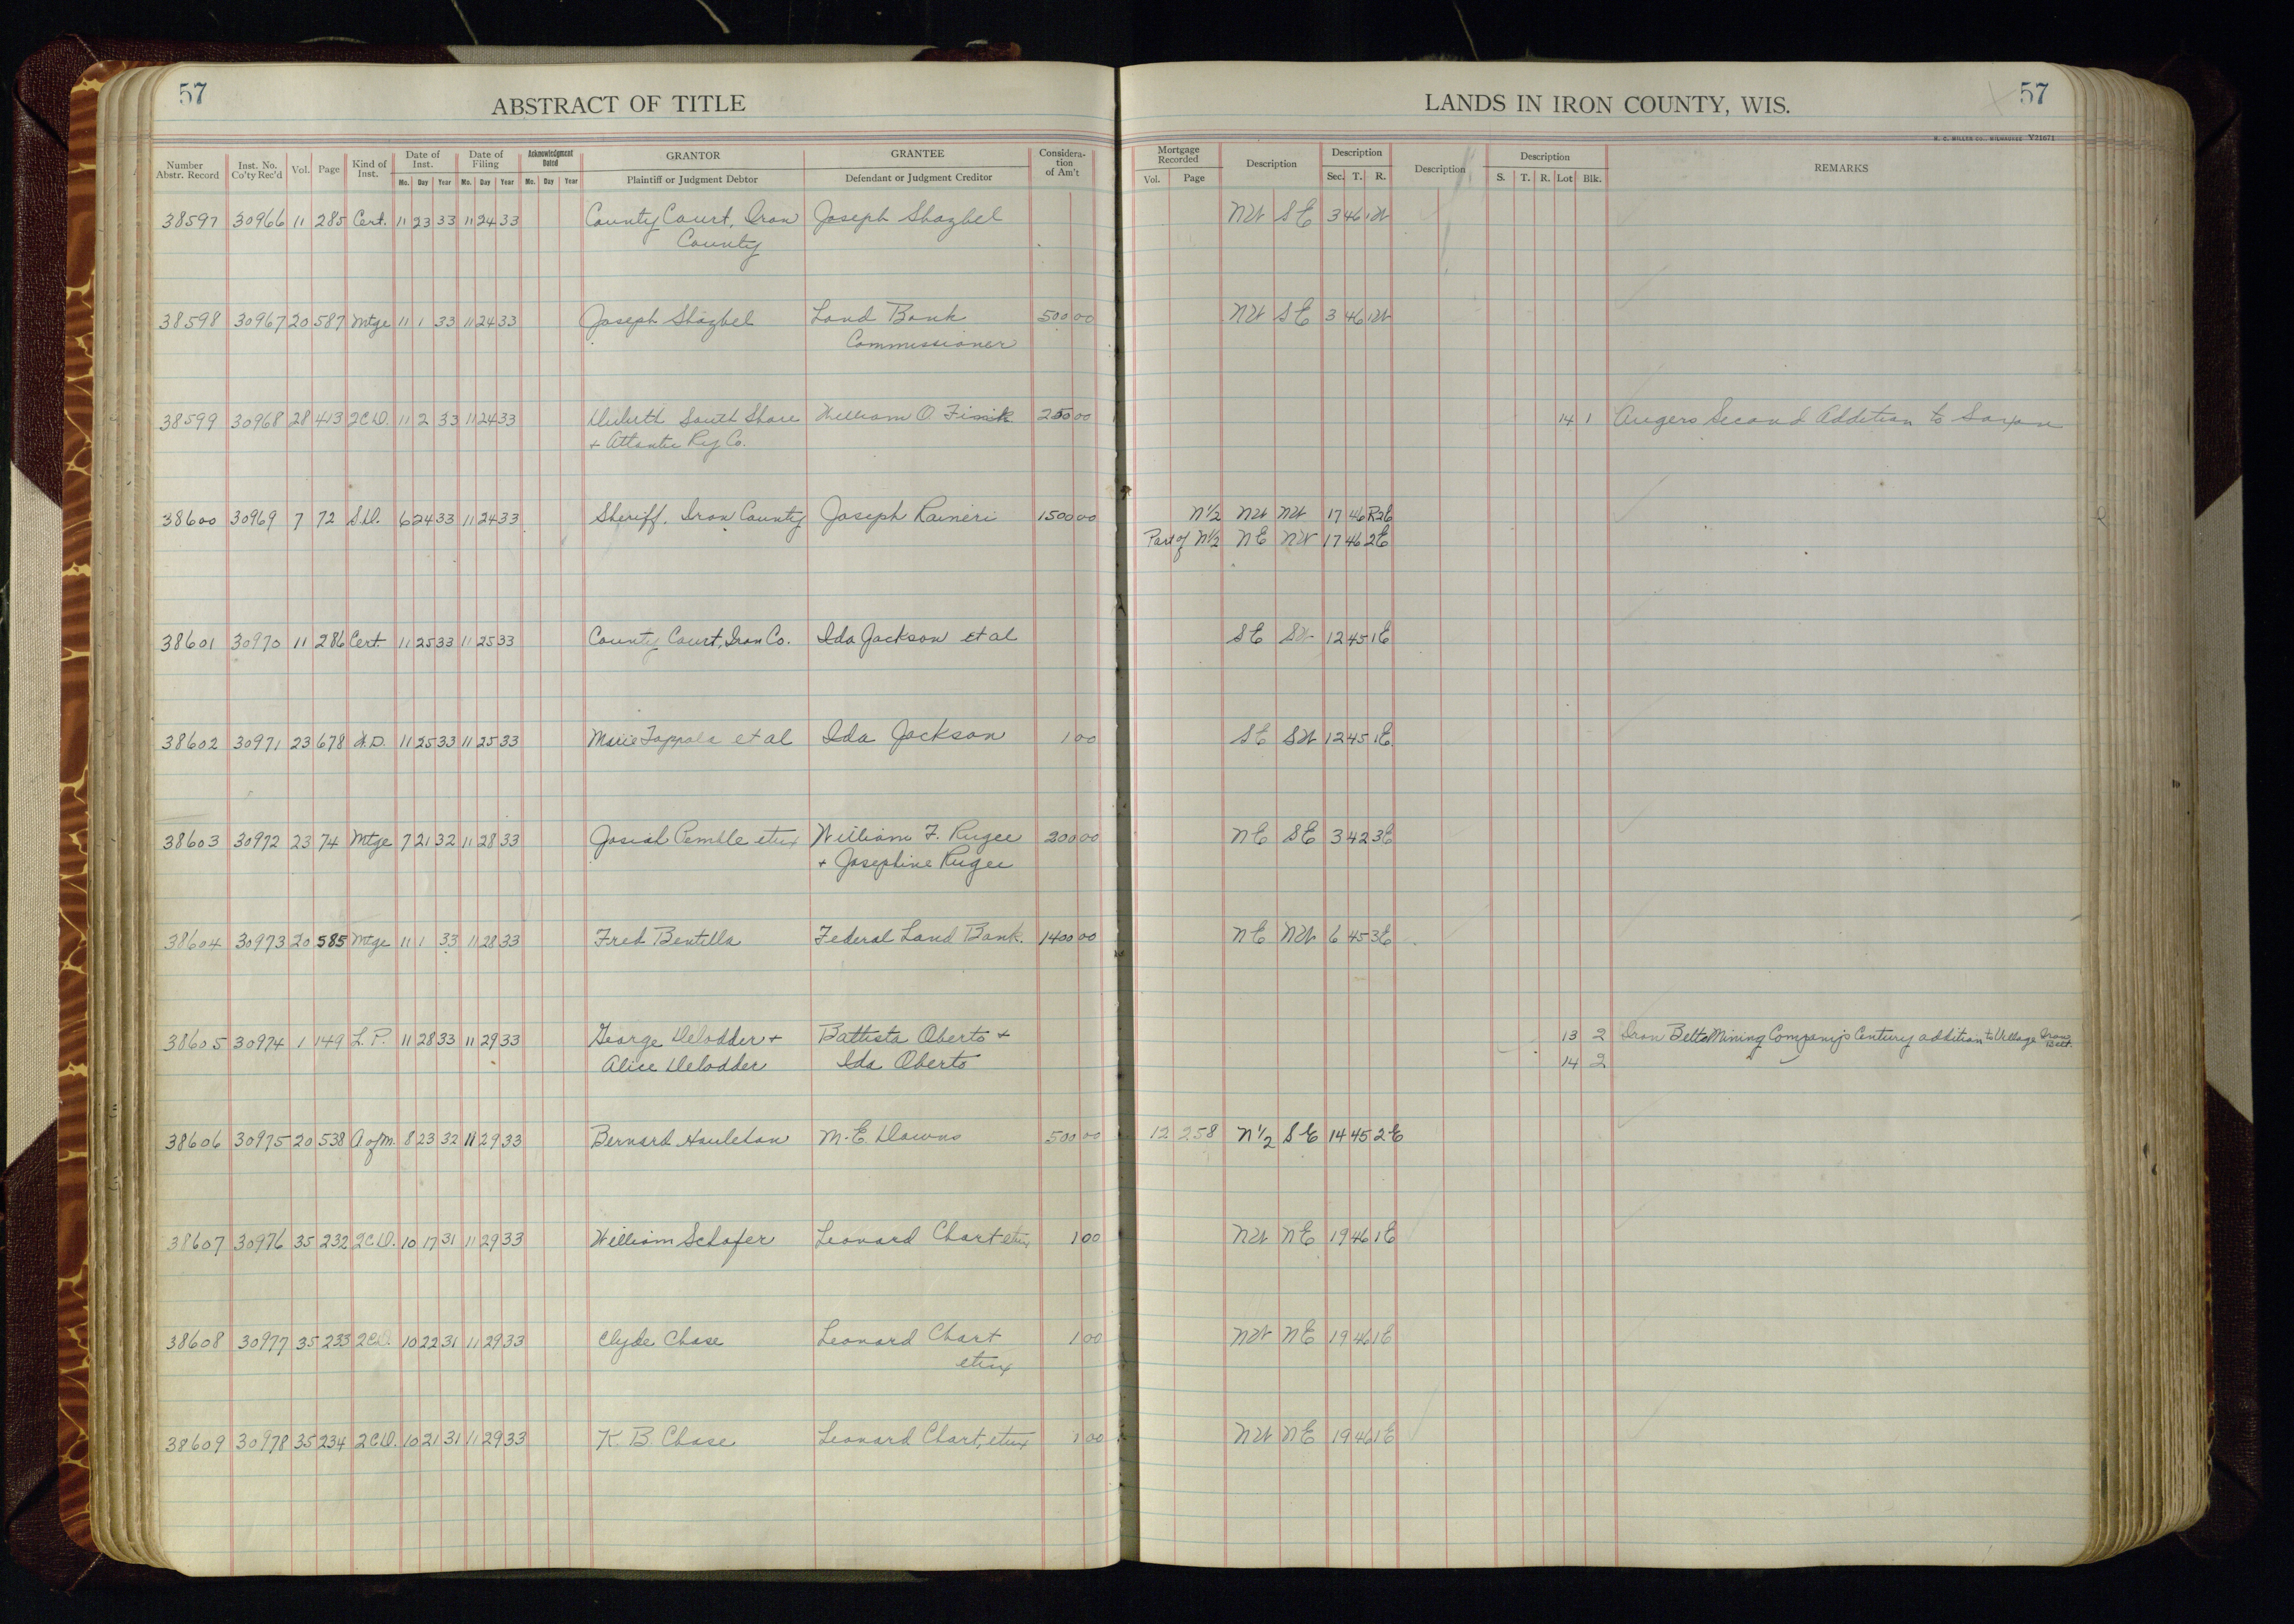 57
ABSTRACT OF TITLE
LANDS IN IRON COUNTY, WIS.
57
H. C. MILLER CO., MILWAUKEE Y21671
Number Abstr. Record Inst. No. Co'ty Rec'd Vol. Page Kind of Inst. Date of Inst. Mo. Day Year Date of Filing Mo. Day Year Acknowledgment Dated Mo. Day Year GRANTOR Plaintiff or Judgment Debtor GRANTEE Defendant or Judgment Creditor Considera-tion of Am't Mortgage Recorded Vol. Page Description Description Sec. T. R. Description Description S. T. R. Lot Blk. REMARKS
38597 30966 11 285 Cert. 11 23 33 11 24 33 County Court, Iron Joseph Shazbel NW SE 3 46 1W
County
38598 30967 20 587 Mtge 11 1 33 11 24 33 Joseph Shazbel Land Bank 500 00 NW SE 3 46 1W
Commissioner
38599 30968 28 413 2CD. 11 2 33 11 24 33 Duluth South Shore William O. 250 00 14 1 Angers Second Addition to Saxon
+ Atlantic Ry Co.
38600 30969 7 72 S.D. 6 24 33 11 24 33 Sheriff, Iron County Joseph Raineri 1500 00 N½ NW NW 17 46 R2E
Part of N½ NE NW 17 46 2E
38601 30970 11 286 Cert. 11 25 33 11 25 33 County Court, Iron Co. Ida Jackson et al SE SW 12 45 1E
38602 30971 23 678 W.D. 11 25 33 11 25 33 Marie Tappala et al Ida Jackson 1 00 SE SW 12 45 1E
38603 30972 23 74 Mtge 7 21 32 11 28 33 Josiah Pemble etux William F. Rugee 200 00 NE SE 3 42 3E
+ Josephine Rugee
38604 30973 20 585 Mtge 11 1 33 11 28 33 Fred Bentilla Federal Land Bank. 1400 00 NE NW 6 45 3E
38605 30974 1 149 L.P. 11 28 33 11 29 33 George DeVodder + Battista Oberto + 13 2 Iron Belt Mining Company's Century addition to Village Iron Belt.
Alice DeVodder Ida Oberto 14 2
38606 30975 20 538 A of M. 8 23 32 11 29 33 Bernard Houlehan M. E. Downs 500 00 12 258 N½ SE 14 45 2E
38607 30976 35 232 2CD. 10 17 31 11 29 33 William Schafer Leonard Chart etux 1 00 NW NE 19 46 1E
38608 30977 35 233 2CD. 10 22 31 11 29 33 Clyde Chase Leonard Chart 1 00 NW NE 19 46 1E
etux
38609 30978 35 234 2CD. 10 21 31 11 29 33 K. B. Chase Leonard Chart, etux 1 00 NW NE 19 46 1E